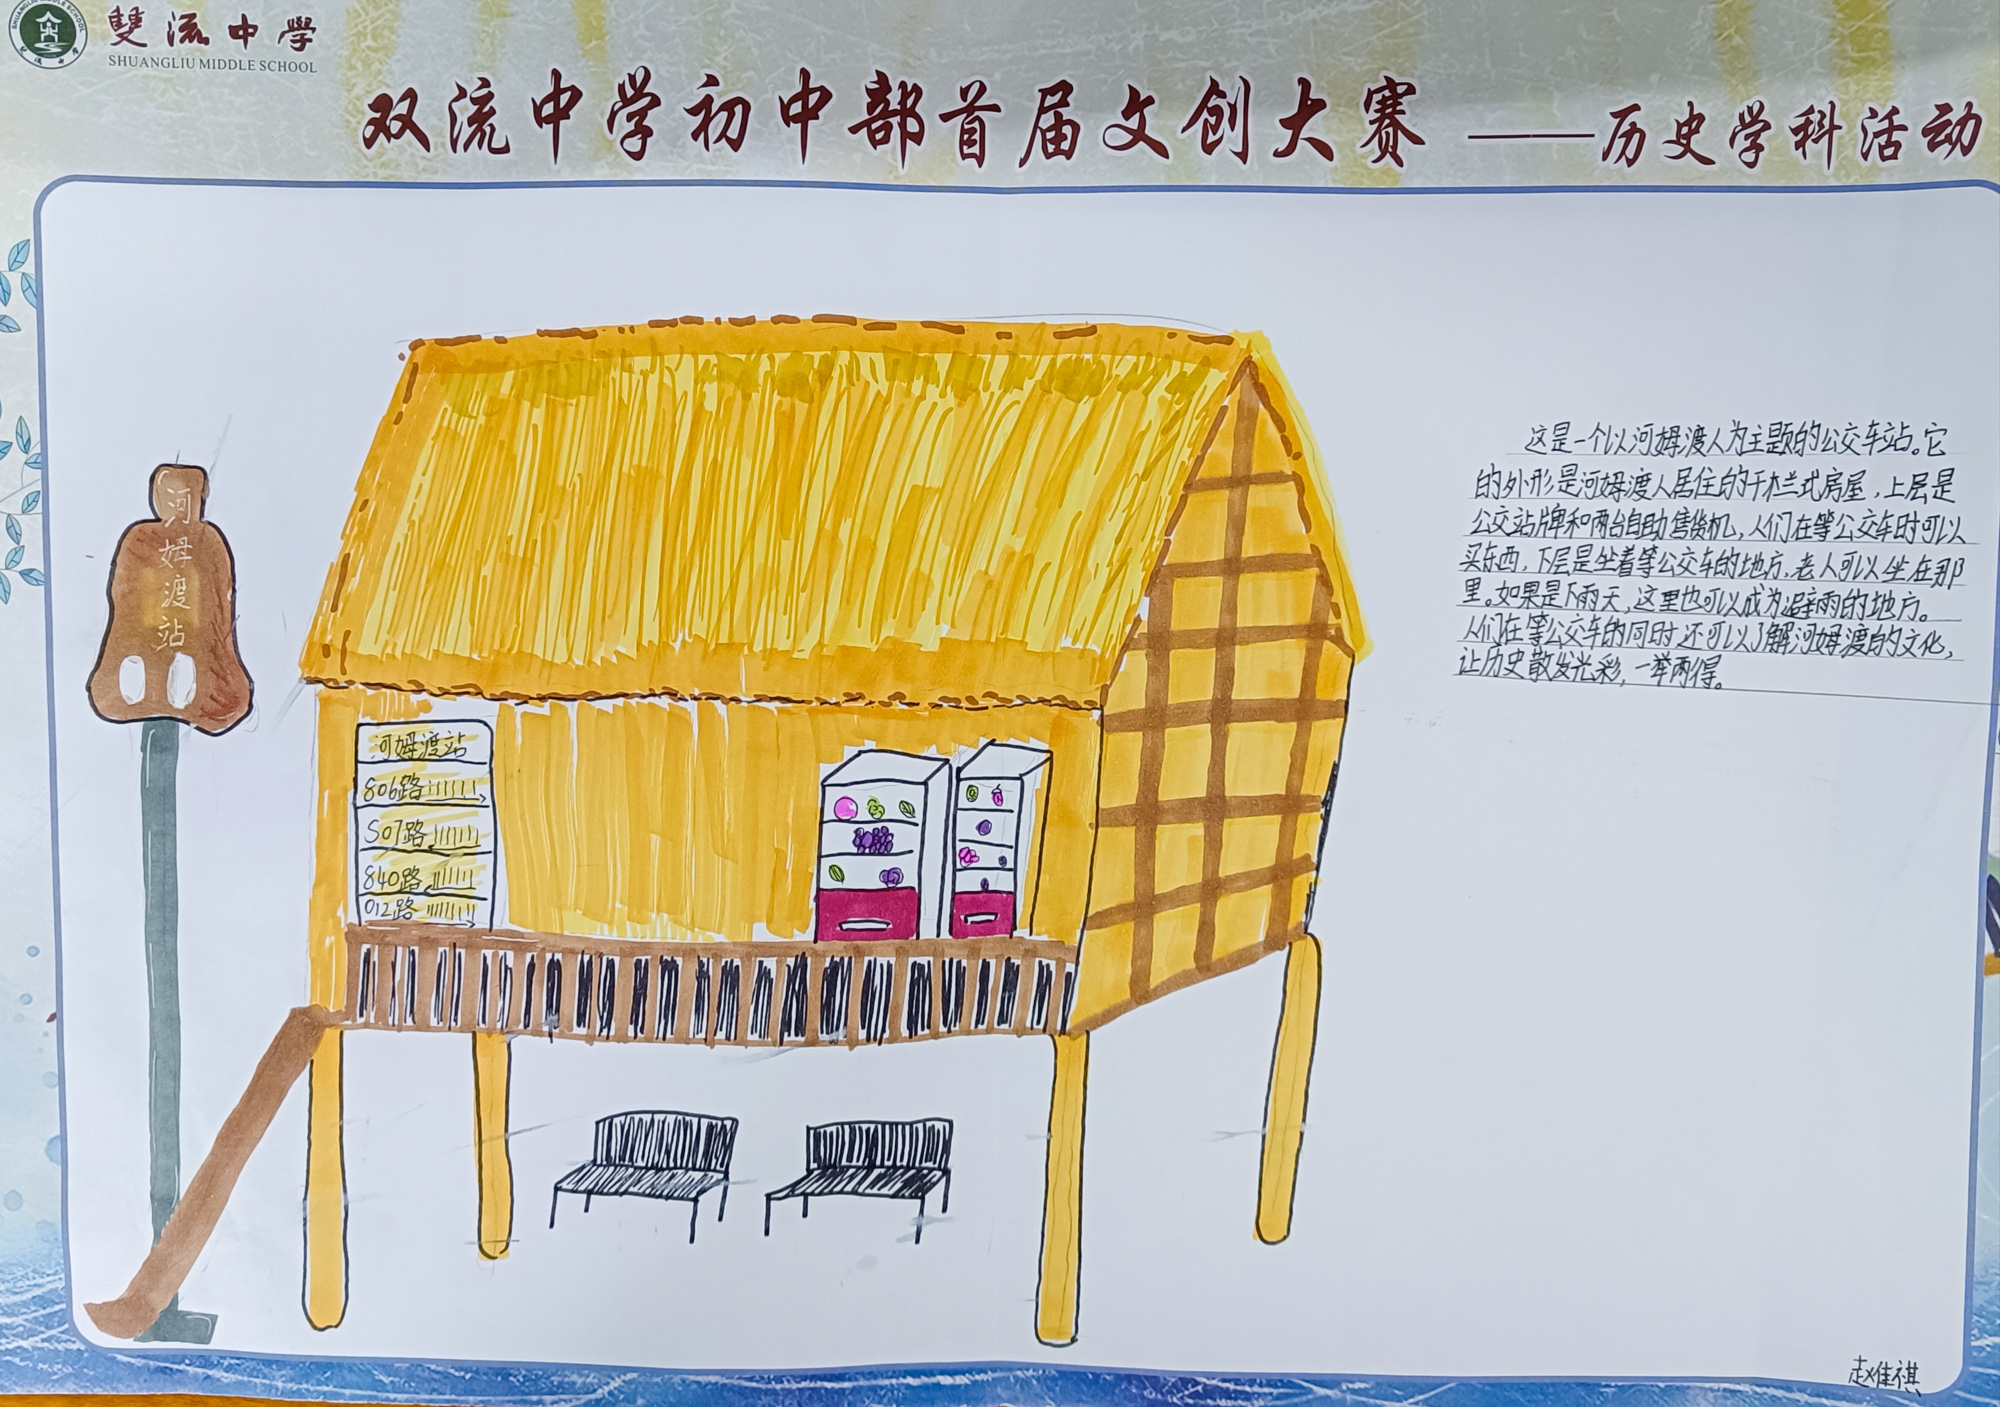 雙流中學
SHUANGLIU MIDDLE SCHOOL
双流中学初中部首届文创大赛 ——历史学科活动
河姆渡站
河姆渡站
806路
507路
840路
012路
这是一个以河姆渡人为主题的公交车站。它
的外形是河姆渡人居住的干栏式房屋，上层是
公交站牌和两台自助售货机，人们在等公交车时可以
买东西，下层是坐着等公交车的地方，老人可以坐在那
里。如果是下雨天，这里也可以成为避雨的地方。
人们在等公交车的同时还可以了解河姆渡的文化，
让历史散发光彩，一举两得。
赵佳祺